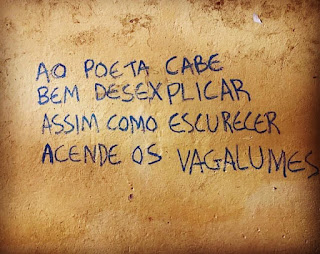 AO POETA CABE
BEM DESEXPLICAR
ASSIM COMO ESCURECER
ACENDE OS VAGALUMES